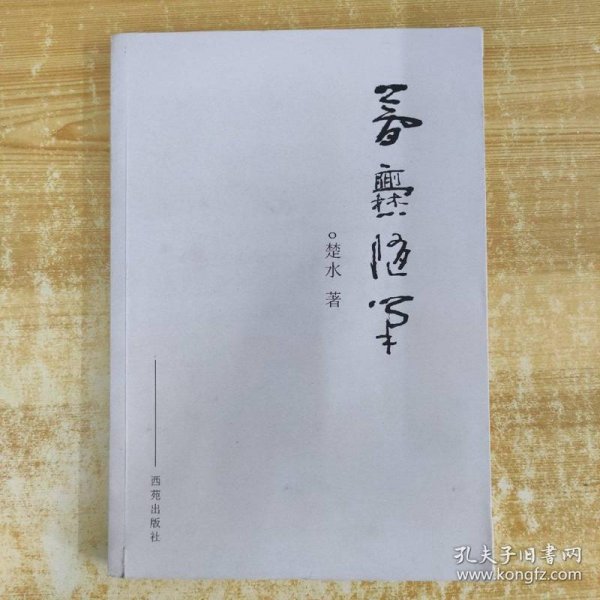 春爨随笔
楚水 著
西苑出版社
孔夫子旧书网
www.kongfz.com